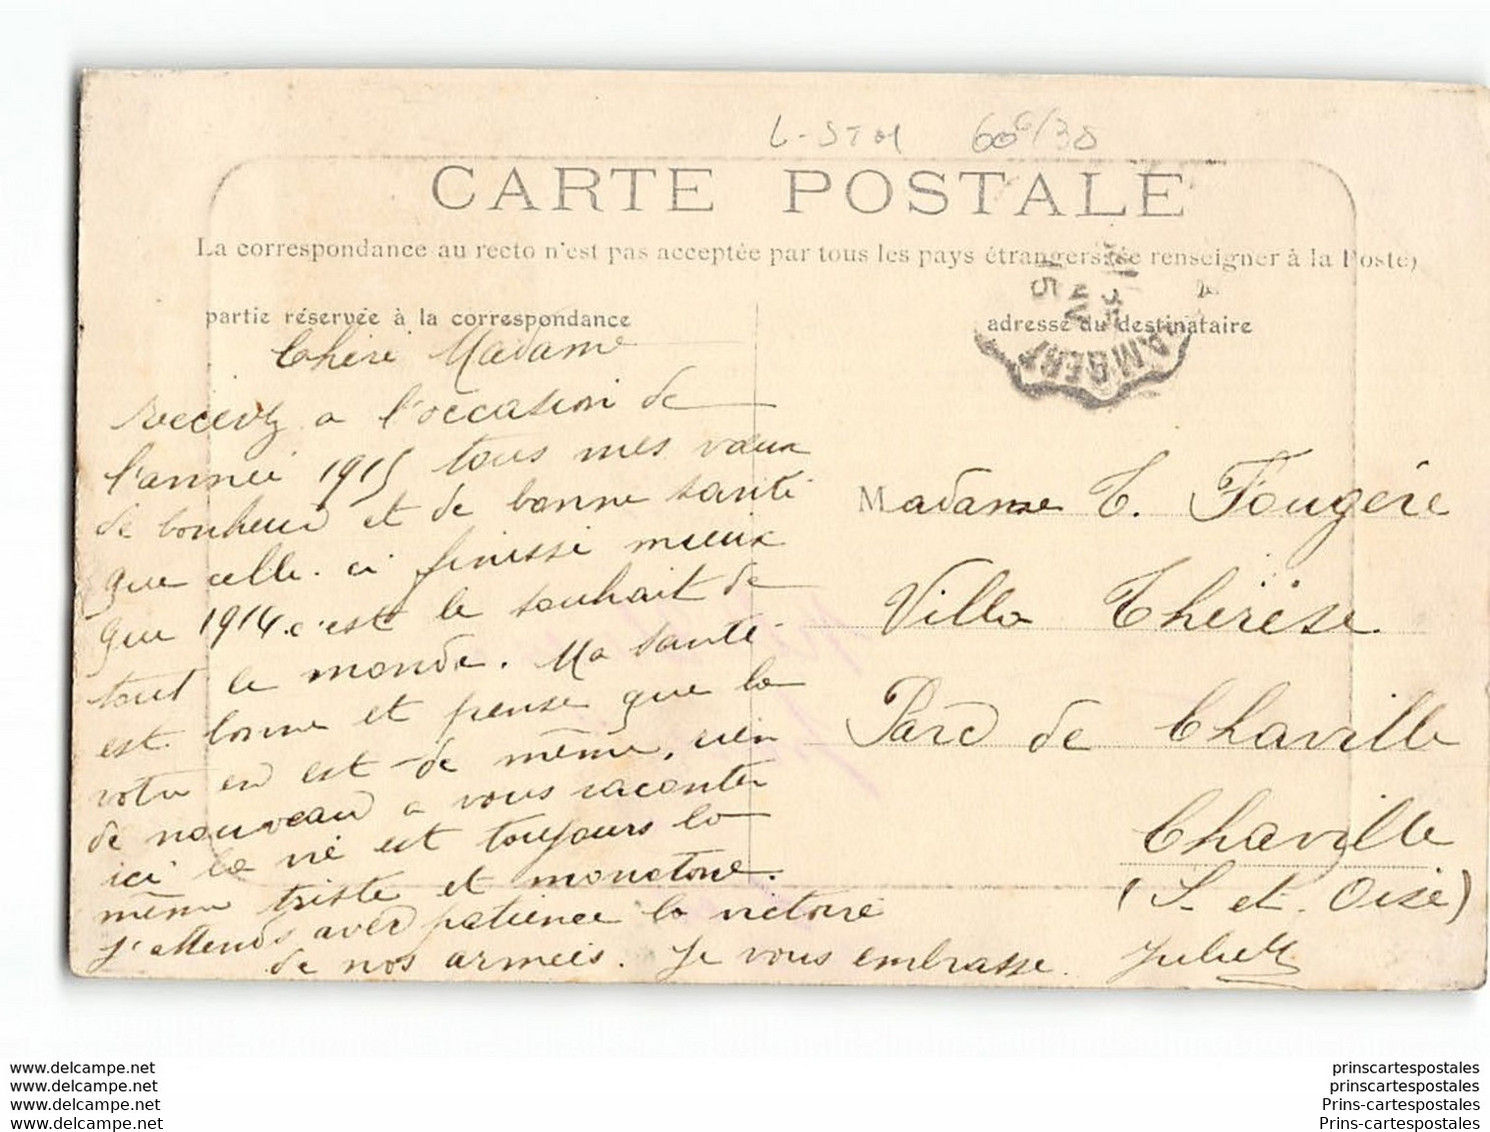 L-STM 606/38
CARTE POSTALE
La correspondance au recto n'est pas acceptée par tous les pays étrangers (se renseigner à la Poste)
partie réservée à la correspondance
Chère Madame
recevez a l'occasion de
l'année 1915 tous mes vœux
de bonheur et de bonne santé
que celle-ci finisse mieux
que 1914. c'est le souhait de
tout le monde. Ma santé
est bonne et pense que la
votre en est de même, rien
de nouveau a vous raconter
ici la vie est toujours la
même triste et monotone.
J'attends avec patience la victoire
de nos armées. Je vous embrasse.
Juliette
adresse du destinataire
AMBERT
15
Madame C. Fougère
Villa Thérèse
Parc de Chaville
Chaville
(S. et. Oise)
www.delcampe.net
www.delcampe.net
www.delcampe.net
www.delcampe.net
prinscartespostales
prinscartespostales
Prins-cartespostales
Prins-cartespostales